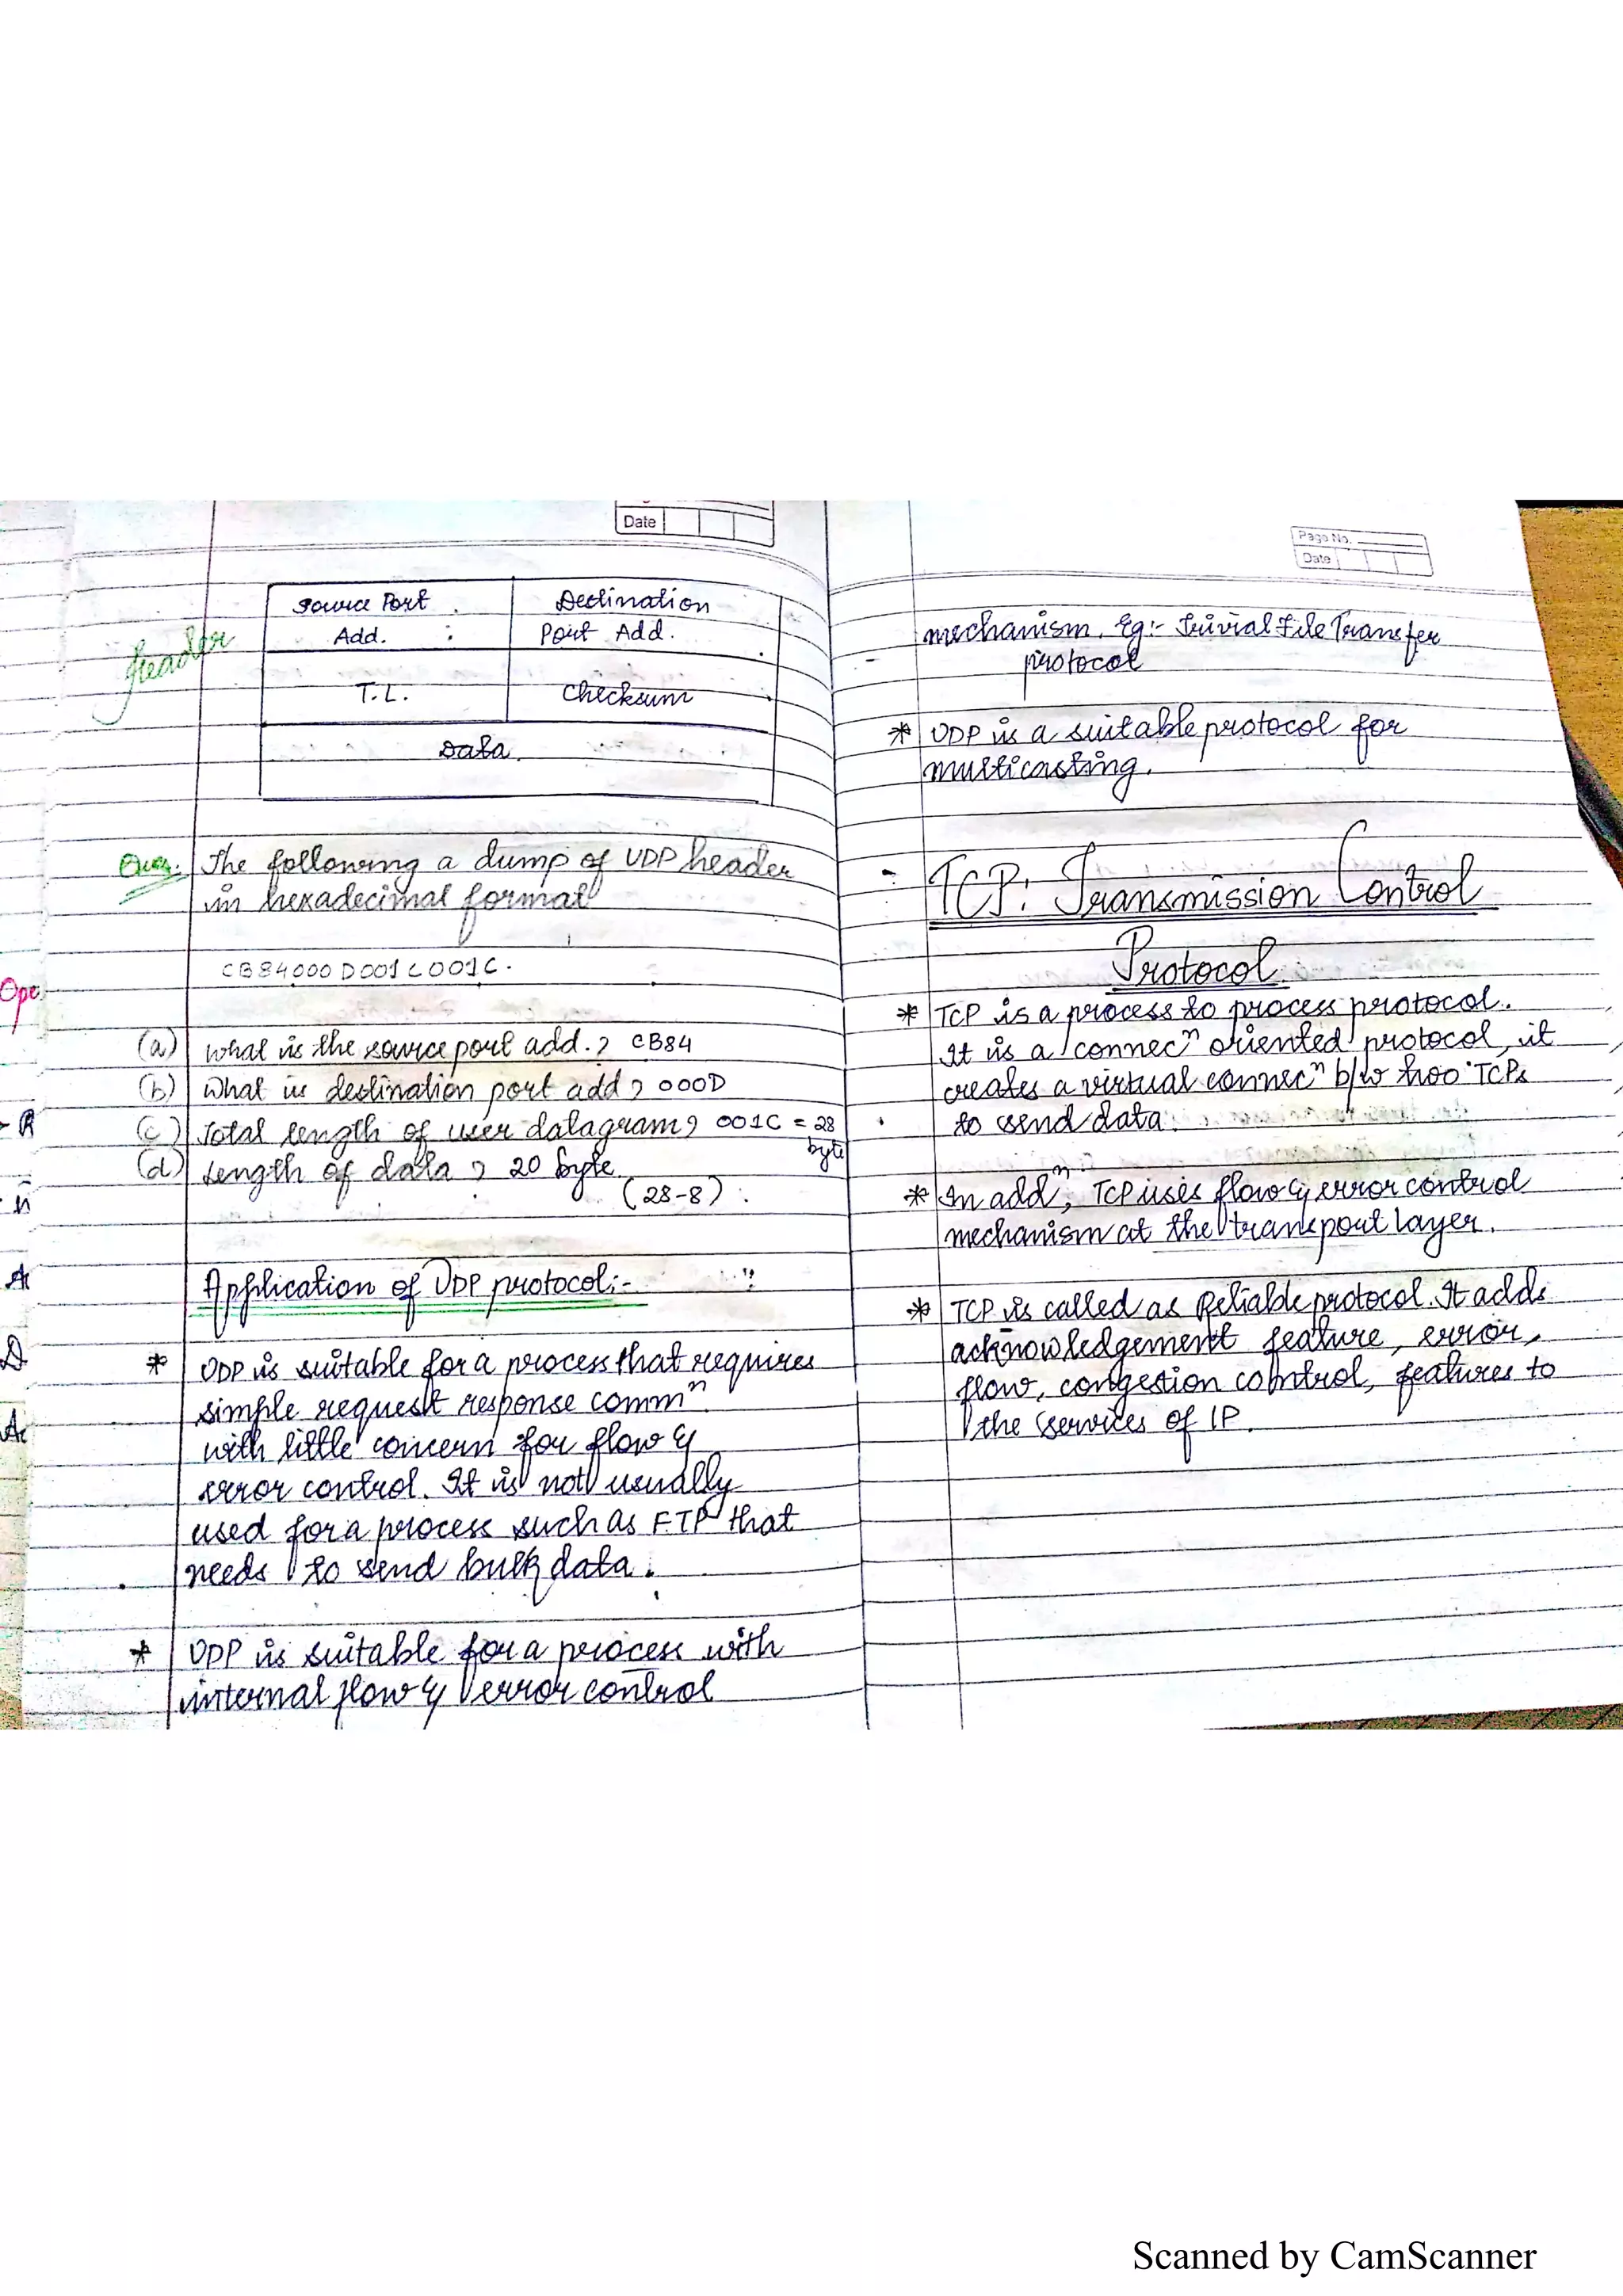 Date
Source Port
Add.
Destination
Port Add.
Header
T.L.
Checksum
Data
Ques. The following a dump of UDP header
in hexadecimal format
CB84000D001C001C.
(a) What is the source port add.? CB84
(b) What is destination port add? 000D
(c) Total length of user datagram? 001C = 28
byte
(d) Length of data? 20 byte
(28-8).
Application of UDP protocol:-
* UDP is suitable for a process that requires
simple request response commⁿ
with little concern for flow &
error control. It is not usually
used for a process such as FTP that
needs to send bulk data.
* UDP is suitable for a process with
internal flow & error control
Page No.
Date
mechanism. Eg:- Trivial File Transfer
protocol
* UDP is a suitable protocol for
multicasting.
TCP: Transmission Control
Protocol
* TCP is a process to process protocol.
It is a connecⁿ oriented protocol, it
creates a virtual connecⁿ b/w two TCPs
to send data.
* In addⁿ, TCP uses flow & error control
mechanism at the transport layer.
* TCP is called as Reliable protocol. It adds
acknowledgement feature, error,
flow, congestion control, features to
the services of IP.
Scanned by CamScanner